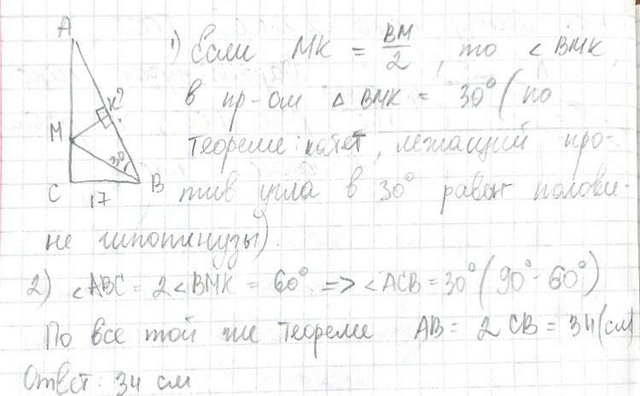 A
К?
М
30°
С 17 В
1) Если МК = ВМ/2, то ∠ВМК
в пр-ом Δ ВМК = 30° (по
теореме: катет, лежащий про-
тив угла в 30° равен полови-
не гипотинузы).
2) ∠АВС = 2∠ВМК = 60° => ∠АСВ = 30° (90°-60°)
По все той же теореме АВ = 2 СВ = 34 (см)
Ответ: 34 см